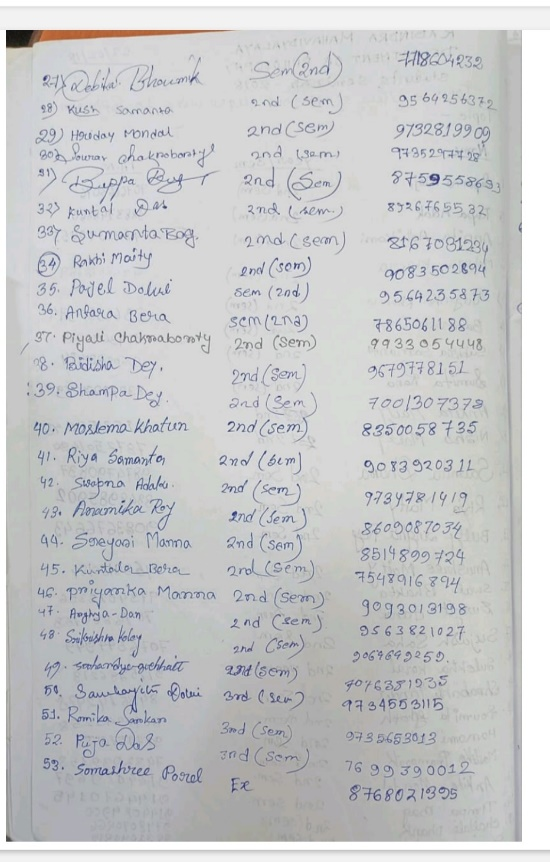 27) Debika Bhoumik Sem(2nd) 7718604232
28) Kush Samanta 2nd (sem) 9564256372
29) Hriday Mondal 2nd (sem) 9732819909
30) Sourav chakraborty 2nd (sem) 9735297728
31) Buppa Roy 2nd (Sem)
32) Kuntal Das 2nd (sem) 8926765532
33) Sumanta Bag. 2nd (sem) 8167091234
34) Rakhi Maity 2nd (sem) 9083502894
35. Payel Dolui sem (2nd) 9564235873
36. Antara Bera sem (2nd) 7865061188
37. Piyali Chakraborty 2nd (sem) 9933054448
38. Bidisha Dey. 2nd (sem) 9679778151
39. Shampa Dey. 2nd (sem) 7001307373
40. Moslema Khatun 2nd (sem) 8350058735
41. Riya Samanta 2nd (sem) 9083920311
42. Swapna Adak. 2nd (sem) 9734781419
43. Anamika Roy 2nd (sem) 8609087034
44. Sreyasi Manna 2nd (sem) 8514899724
45. Kuntala Bera 2nd (sem) 7548916894
46. Priyanka Manna 2nd (sem) 9093013198
47. Arghya-Dan 2nd (sem) 9563821027
48. 2nd (sem) 9064649259.
49. 2nd (sem) 7076351935
50. Dolui 3rd (sem) 9734553115
51. Romika Sarkar 3rd (sem) 9735653013
52. Puja Das 3rd (sem) 7699390012
53. Somashree Porel Ex 8768021395